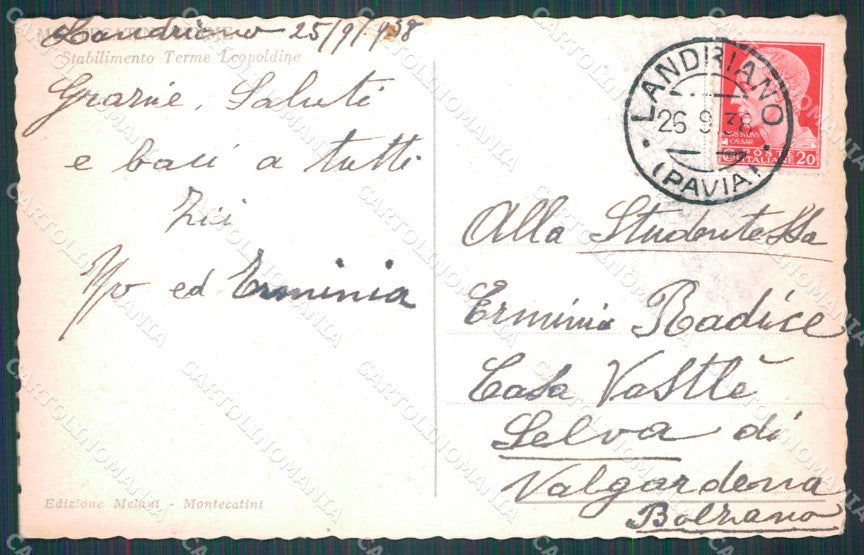 Landriano 25/9/938
Stabilimento Terme Leopoldine
Grazie, Saluti
e baci a tutti
Zii
ed Erminia
Edizione Melani - Montecatini
LANDRIANO
26 9 38
(PAVIA)
POSTE
ITALIANE 20
Alla Studentessa
Erminia Radice
Casa Vastlè
Selva di
Valgardena
Bolzano
CARTOLINOMANIA